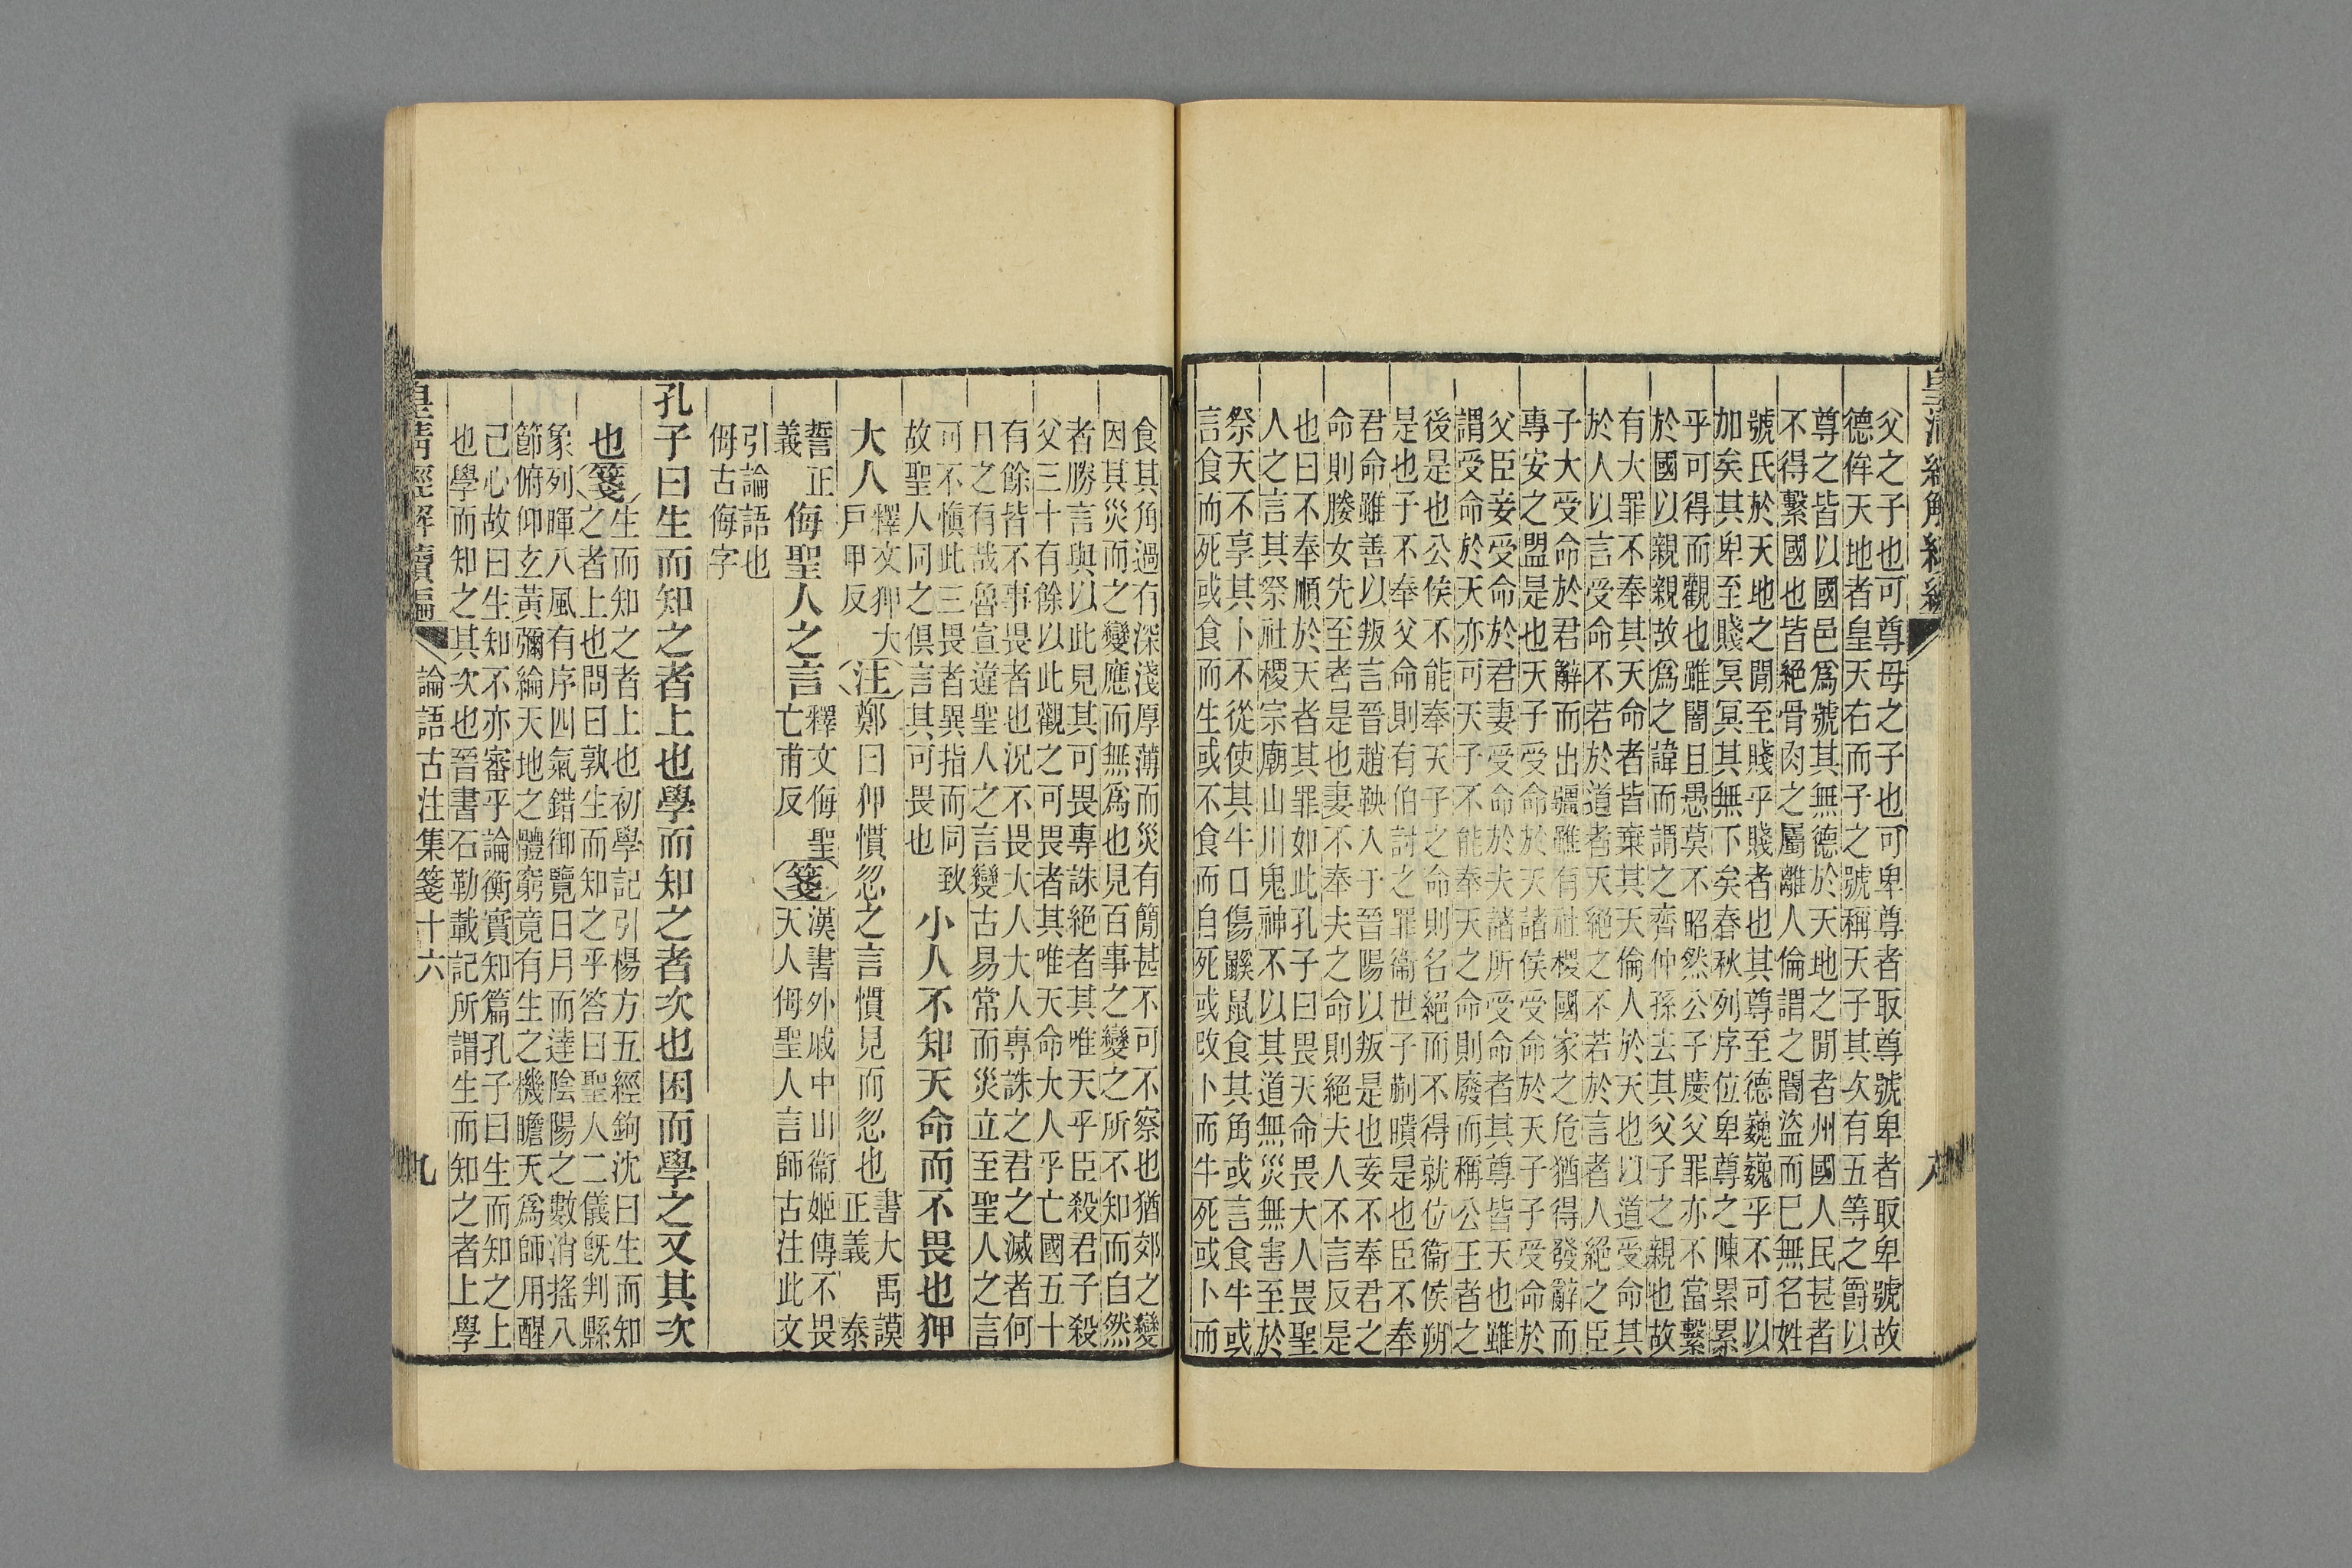 皇清經解續編
父之子也可尊母之子也可卑尊者取尊號卑者取卑號故
德侔天地者皇天右而子之號稱天子其次有五等之爵以
尊之皆以國邑爲號其無德於天地之閒者州國人民甚者
不得繫國也皆絕骨肉之屬離人倫謂之閽盜而巳無名姓
號氏於天地之閒至賤乎賤者也其尊至德巍巍乎不可以
加矣其卑至賤冥冥其無下矣春秋列序位卑尊之陳累累
乎可得而觀也雖闇且愚莫不昭然公子慶父罪亦不當繫
於國以親親故爲之諱而謂之齊仲孫去其父子之親也故
有大罪不奉其天命者皆棄其天倫人於天也以道受命其
於人以言受命不若於道者天絕之不若於言者人絕之臣
子大受命於君辭而出疆雖有社稷國家之危猶得發辭而
專安之盟是也天子受命於天諸侯受命於天子子受命於
父臣妾受命於君妻受命於夫諸所受命者其尊皆天也雖
謂受命於天亦可天子不能奉天之命則廢而稱公王者之
後是也公侯不能奉天子之命則名絕而不得就位衞侯朔
是也子不奉父命則有伯討之罪衞世子蒯聵是也臣不奉
君命雖善以叛言晉趙鞅入于晉陽以叛是也妾不奉君之
命則媵女先至者是也妻不奉夫之命則絕夫人不言反是
也曰不奉順於天者其罪如此孔子曰畏天命畏大人畏聖
人之言其祭社稷宗廟山川鬼神不以其道無災無害至於
祭天不享其卜不從使其牛口傷鼷鼠食其角或言食牛或
言食而死或食而生或不食而自死或改卜而牛死或卜而
食其角過有深淺厚薄而災有簡甚不可不察也猶郊之變
因其災而之變應而無爲也見百事之變之所不知而自然
者勝言與以此見其可畏專誅絕者其唯天乎臣殺君子殺
父三十有餘以此觀之可畏者其唯天命大人乎亡國五十
有餘皆不事畏者也況不畏大人大人專誅之君之滅者何
日之有哉魯宣違聖人之言變古易常而災立至聖人之言
可不愼此三畏者異指而同致
故聖人同之俱言其可畏也
小人不知天命而不畏也狎
大人
釋文狎大
戶甲反
注
鄭曰狎慣忽之言慣見而忽也
書大禹謨
正義 泰
誓正
義
侮聖人之言
釋文侮聖
亡甫反
箋
漢書外戚中山衞姬傳不畏
天人侮聖人言師古注此文
引論語也
侮古侮字
孔子曰生而知之者上也學而知之者次也困而學之又其次
也
箋
生而知之者上也初學記引楊方五經鉤沈曰生而知
之者上也問曰孰生而知之乎答曰聖人二儀旣判縣
象列暉八風有序四氣錯御覽日月而達陰陽之數消搖八
節俯仰玄黃彌綸天地之體窮竟有生之機瞻天爲師用醒
己心故曰生知不亦審乎論衡實知篇孔子曰生而知之上
也學而知之其次也晉書石勒載記所謂生而知之者上學
皇淸經解續編
論語古注集箋十六
九